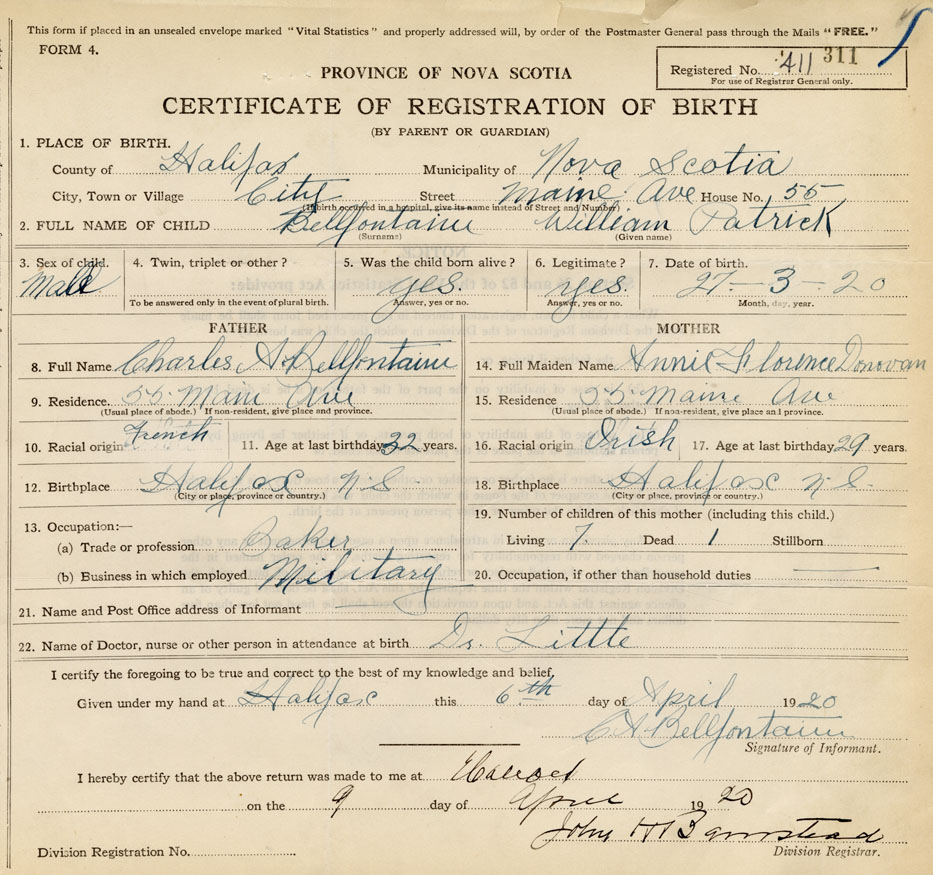 This form if placed in an unsealed envelope marked "Vital Statistics" and properly addressed will, by order of the Postmaster General pass through the Mails "FREE."
FORM 4.
PROVINCE OF NOVA SCOTIA
Registered No. 411 311
For use of Registrar General only.
CERTIFICATE OF REGISTRATION OF BIRTH
(BY PARENT OR GUARDIAN)
1. PLACE OF BIRTH.
County of Halifax Municipality of Nova Scotia
City, Town or Village City Street Maine Ave House No. 55
(If birth occurred in a hospital, give its name instead of Street and Number)
2. FULL NAME OF CHILD Bellfontaine William Patrick
(Surname) (Given name)
3. Sex of child. Male 4. Twin, triplet or other? 5. Was the child born alive? yes. 6. Legitimate? yes. 7. Date of birth. 27-3-20
To be answered only in the event of plural birth. Answer, yes or no. Answer, yes or no. Month, day, year.
FATHER MOTHER
8. Full Name Charles A. Bellfontaine 14. Full Maiden Name Annie Florence Donovan
9. Residence 55 Main Ave 15. Residence 55 Maine Ave
(Usual place of abode.) If non-resident, give place and province. (Usual place of abode.) If non-resident, give place and province.
10. Racial origin French 11. Age at last birthday 32 years. 16. Racial origin Irish 17. Age at last birthday 29 years.
12. Birthplace Halifax N.S 18. Birthplace Halifax N.S.
(City or place, province or country.) (City or place, province or country.)
13. Occupation:— 19. Number of children of this mother (including this child.)
(a) Trade or profession Baker Living 7 Dead 1 Stillborn
(b) Business in which employed Military 20. Occupation, if other than household duties
21. Name and Post Office address of Informant
22. Name of Doctor, nurse or other person in attendance at birth Dr. Little
I certify the foregoing to be true and correct to the best of my knowledge and belief.
Given under my hand at Halifax this 6th day of April 1920
C A Bellfontaine
Signature of Informant.
I hereby certify that the above return was made to me at
on the 9 day of April 1920
John H Barnstead
Division Registrar.
Division Registration No.